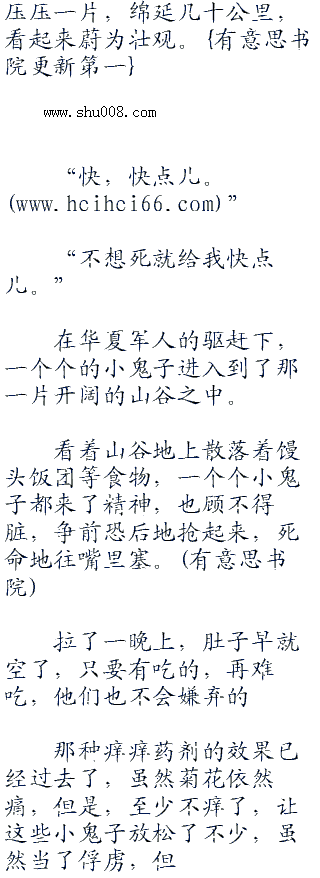 压压一片，绵延几十公里，
看起来蔚为壮观。{有意思书
院更新第一}
www.shu008.com
“快，快点儿。
(www.hcihci66.com)”
“不想死就给我快点
儿。”
在华夏军人的驱赶下，
一个个的小鬼子进入到了那
一片开阔的山谷之中。
看着山谷地上散落着馒
头饭团等食物，一个个小鬼
子都来了精神，也顾不得
脏，争前恐后地抢起来，死
命地往嘴里塞。(有意思书
院)
拉了一晚上，肚子早就
空了，只要有吃的，再难
吃，他们也不会嫌弃的
那种痒痒药剂的效果已
经过去了，虽然菊花依然
痛，但是，至少不痒了，让
这些小鬼子放松了不少，虽
然当了俘虏，但